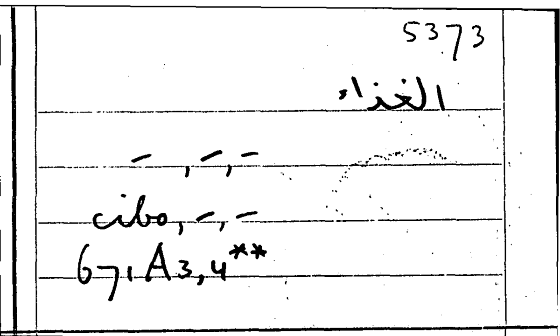 5373
الغذاء
-, -, -
cibo, -, -
671A3,4**